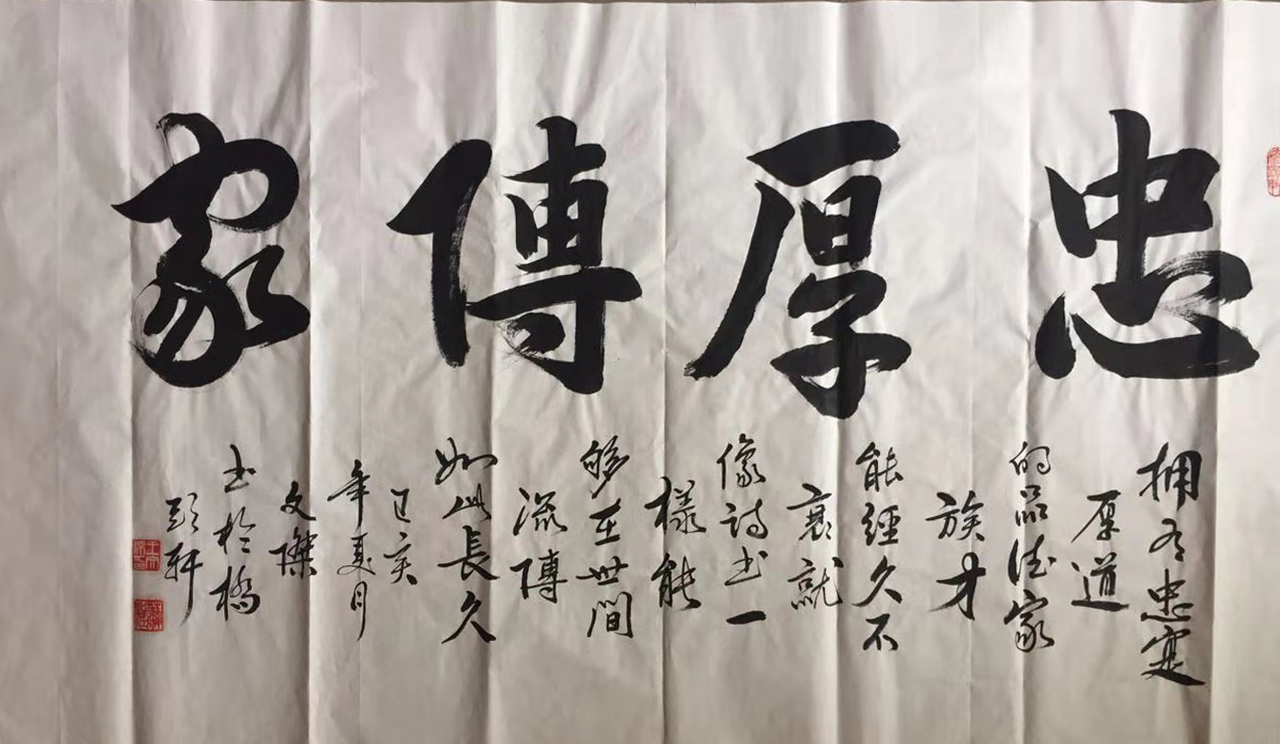 忠厚傳家
拥有忠實
厚道
的品德家
族才
能經久不
衰就
像詩书一
樣能
够在世間
流傳
如此長久
己亥
年夏月
文璨
书於橋
彭轩